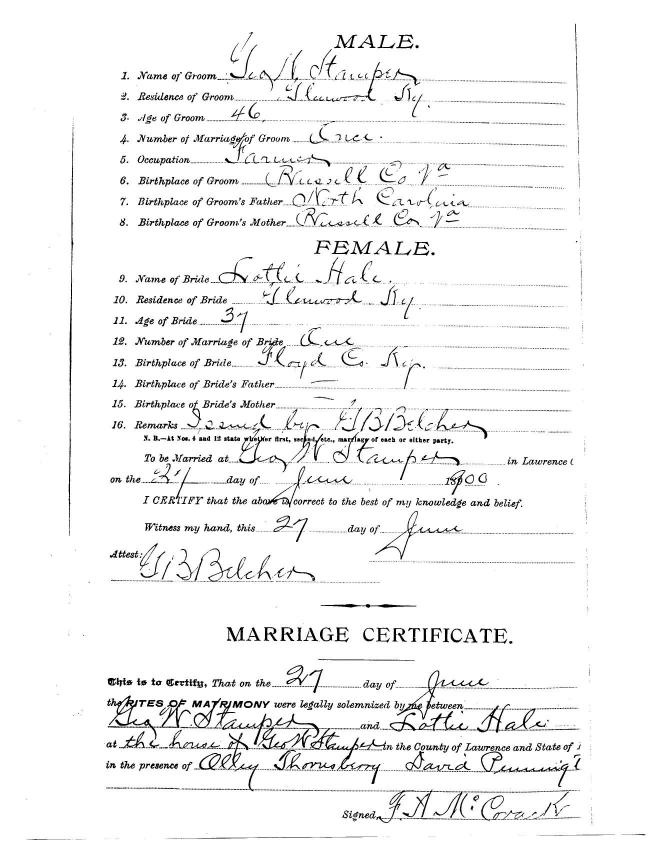 MALE.
1. Name of Groom Geo W Stamper
2. Residence of Groom Glenwood Ky.
3. Age of Groom 46
4. Number of Marriage of Groom Once.
5. Occupation Farmer
6. Birthplace of Groom Russell Co Va
7. Birthplace of Groom's Father North Carolina
8. Birthplace of Groom's Mother Russell Co Va
FEMALE.
9. Name of Bride Lottie Hale
10. Residence of Bride Glenwood Ky
11. Age of Bride 37
12. Number of Marriage of Bride
13. Birthplace of Bride Floyd Co. Ky.
14. Birthplace of Bride's Father —
15. Birthplace of Bride's Mother —
16. Remarks Issued by G B Belcher
N. B.—At Nos. 4 and 12 state whether first, second, etc., marriage of each or either party.
To be Married at Geo W Stamper in Lawrence C
on the 27 day of June 1900
I CERTIFY that the above is correct to the best of my knowledge and belief.
Witness my hand, this 27 day of June
Attest:
G B Belcher
MARRIAGE CERTIFICATE.
This is to Certify, That on the 27 day of June
the RITES OF MATRIMONY were legally solemnized by me between
Geo W Stamper and Lottie Hale
at the house of Geo W Stamper in the County of Lawrence and State of
in the presence of Olley Thornsberry David Penningt
Signed, F. A. McCorack